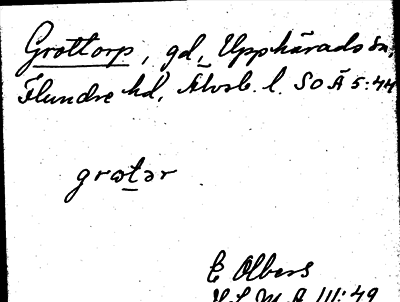 Grottorp, gd, Upphärads sn,
Flundre hd, Älvsb. l. SOÄ 5:44
grωtər
E Olbers
V.S.M.A III:49